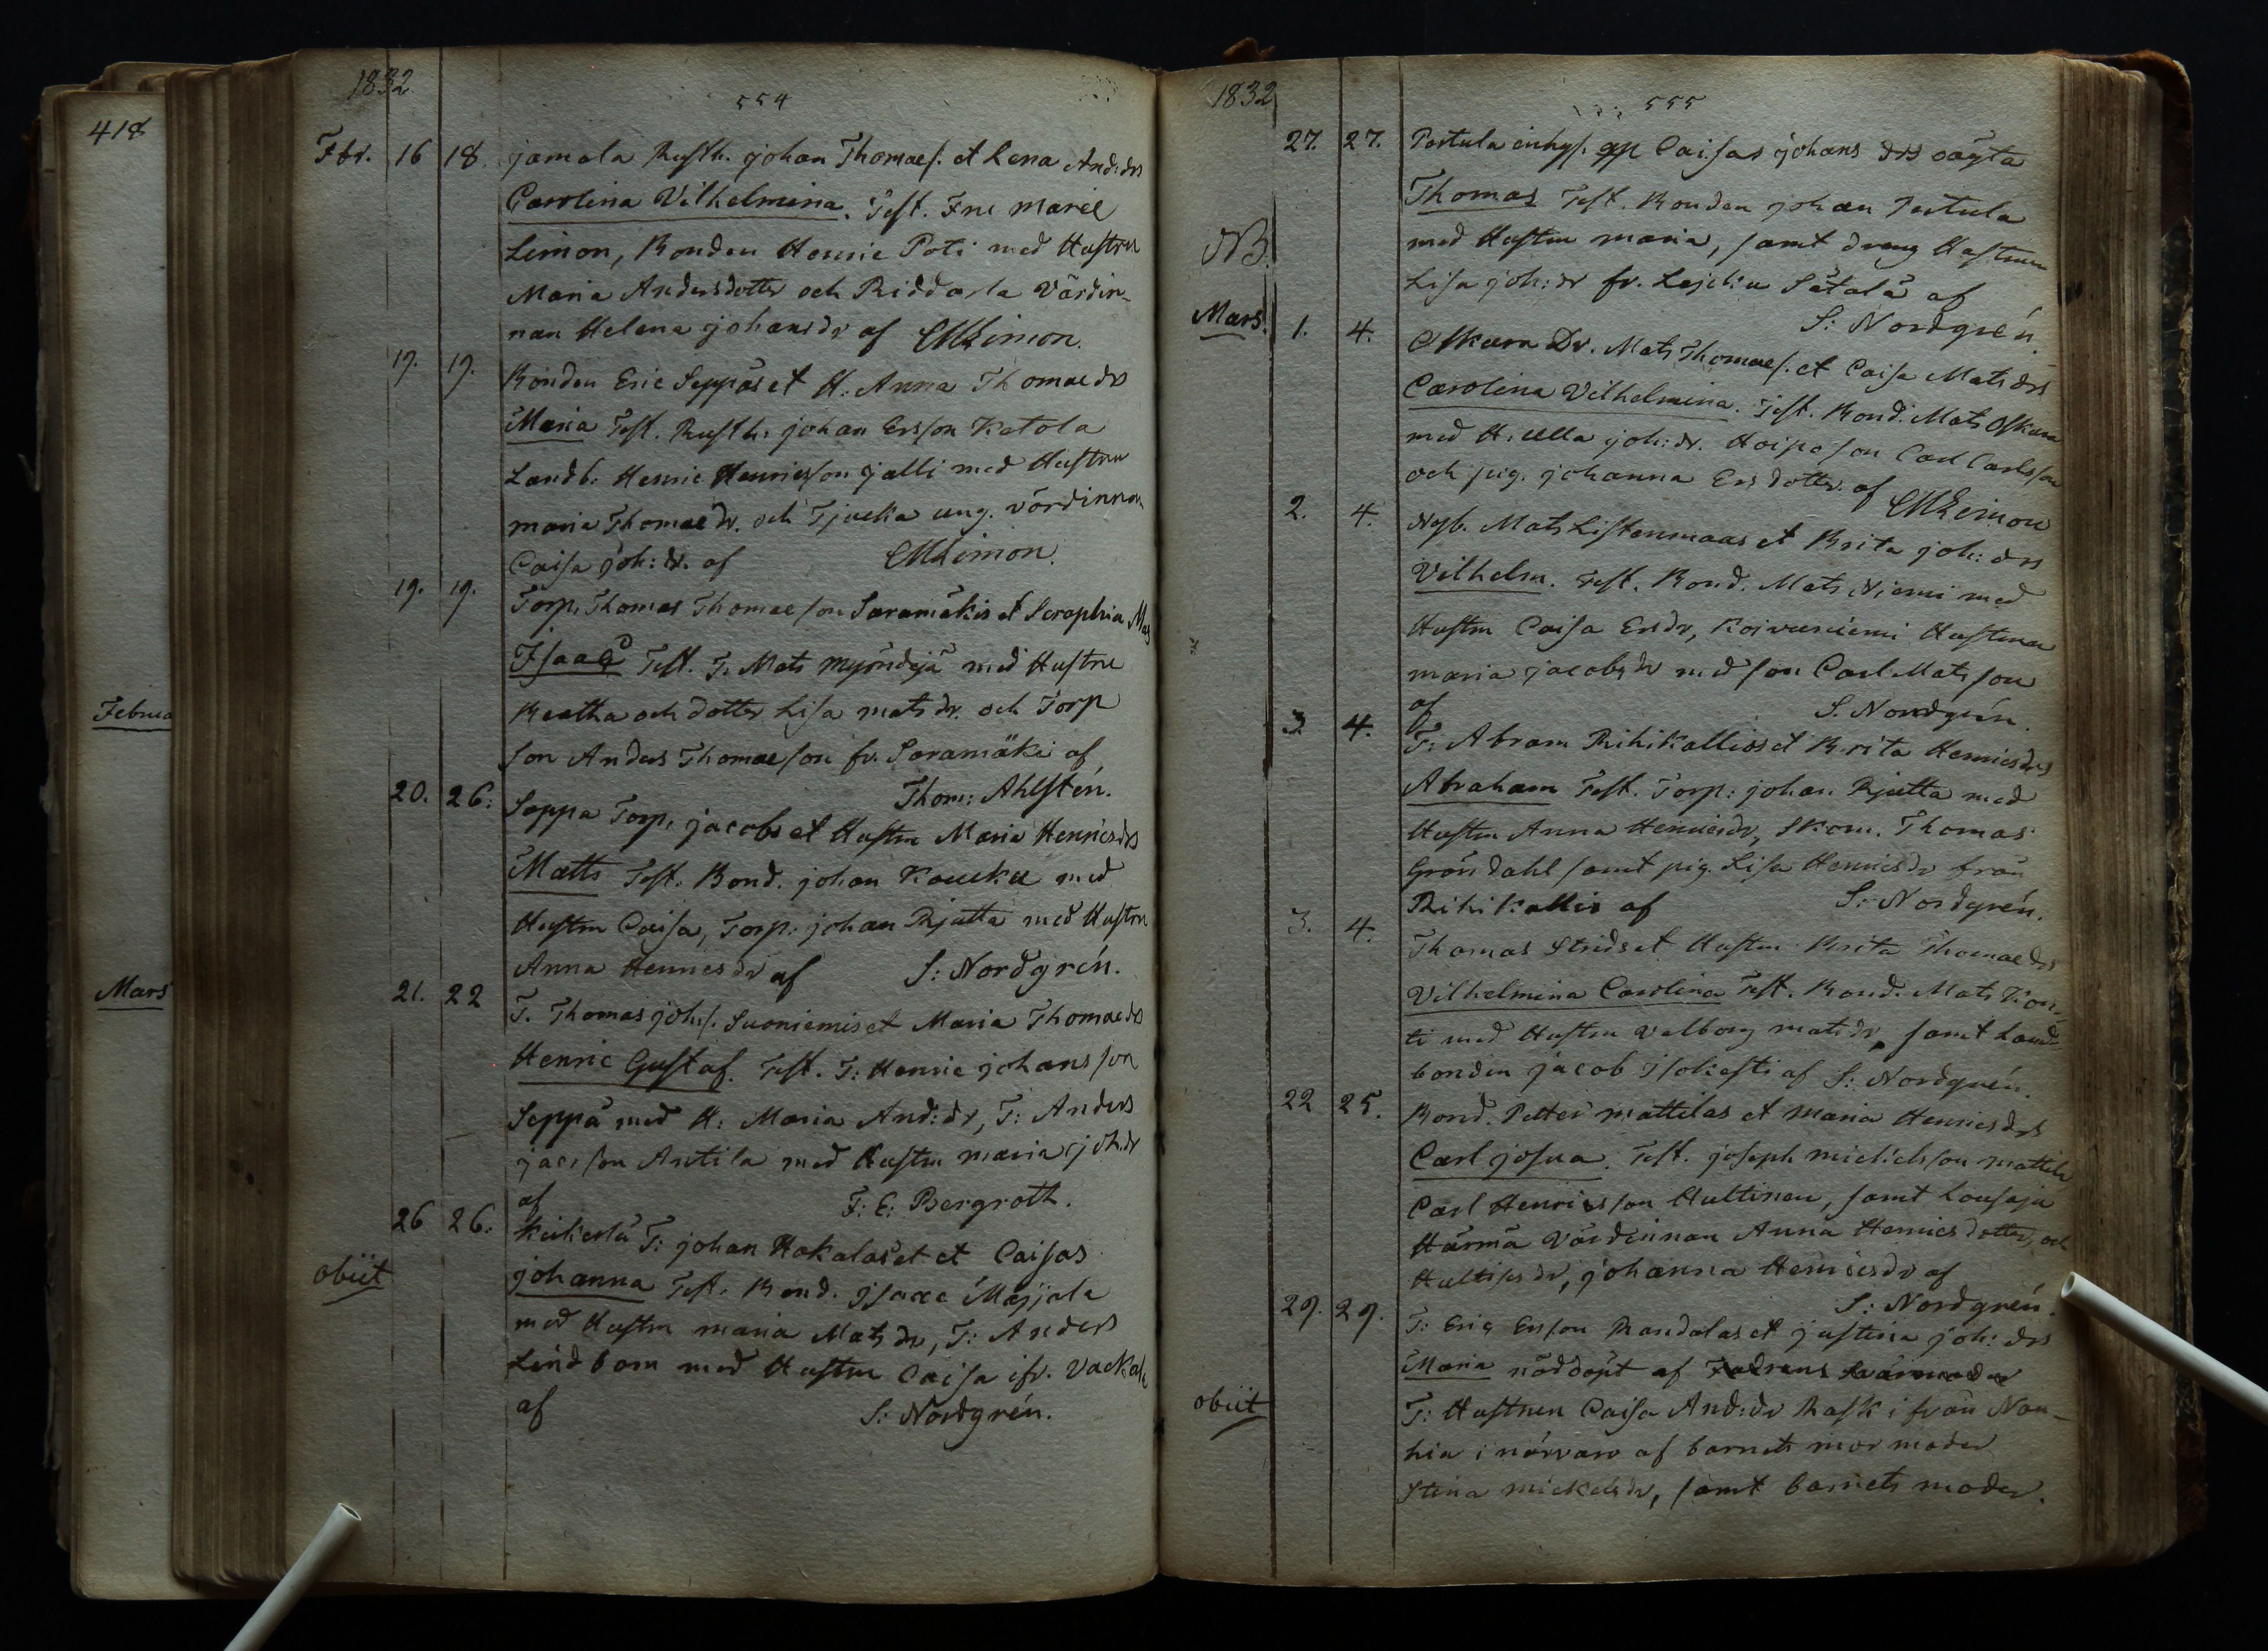 418
Februa
Mars
1832
554
Fbr. 16 18. jamala Rusth. johan Thomaes. et Lena And:drs
Carolina Vilhelmina. Test. Fru Marie
Limon, Bonden Henric Poti med Hustru
Maria Andersdotter och Riddarla Värdin-
nan Helena johansdr af CMLimon.
19. 19. Bonden Eric Seppäs et H. Anna Thomaedrs
Maria Test. Rusth: johan Ersson Katola
Landb. Henric Henricsson jalli med Hustru
maria Thomaedr. och Tjucka ung. värdinnan
Caisa joh:dr. af CMLimon.
19. 19. Torp. Thomas Thomaeson Saramäkis et Seraphia
Isaac Test. T. Mats Myöndejä med Hustru
Beatha och dotter Lisa matsdr. och Torp
son Anders Thomaeson fr. Saramäki af
Thom: Ahlstén.
20. 26: Seppä Torp. jacobs et Hustru Maria Henricsdrs
Matts Test. Bond. johan Kouku med
Hustru Caisa, Torp: johan Rjutta med Hustru
Anna Henricsdr af S: Nordgrén.
21. 22 T. Thomas johs. Suoniemis et Maria Thomaedrs
Henric Gustaf. Test. T: Henric johansson
Seppä med H: Maria And:dr, T: Anders
jacsson Antila med Hustru maria joh:dr
af F: E: Bergroth.
26 26: Keikerlä T: johan Hakalas et et Caisas
obiit johanna Test. Bond. Isaac Maijala
med Hustru maria Matsdr, T: Anders
Lindbom med Hustru Caisa ifr.
af S: Nordgrén.
1832
555
27. 27. Pertula inhys. Caisas johans drs oägta
Thomas Test. Bonden johan Pertula
NB. med Hustru maria, samt dreng Hustrun
Lisa joh:dr fr. Säталä af
S: Nordgrén.
Mars. 1. 4. Oskara Dr. Mats Thomaes. et Caisa Matsdrs
Carolina Vilhelmina. Test. Bond. Mats Oskara
med H: Ulla joh:dr. Hoipo son Carl Carlsson
och pig. johanna Ersdotter. af CMLimon
2. 4. Nyb. Mats Listenmaas et Brita joh:drs
Vilhelm. Test. Bond. Mats Niemi med
Hustru Caisa Ersdr, Koivuniemi Hustrun
maria jacobsdr med son Carl Matsson
af S. Nordgrén.
3 4. T: Abram Rihikallios et Brita Henricsdrs
Abraham Test. Torp: johan Rjutta med
Hustru Anna Henricsdr, Skom. Thomas
Gröndahl samt pig. Lisa Henricsdr från
Rihikallio af S: Nordgrén.
3. 4. Thomas Strids et Hustru Brita Thomaedrs
Vilhelmina Carolina Test. Bond. Mats Kon-
ti med Hustru Valborg matsdr, samt Land-
bonden jacob Isokesti af S: Nordgrén.
22 25. Bond. Petter mattilas et maria Henricsdrs
Carl josua. Test. joseph michelsson mattila
Carl Henricsson Hultinen, samt Lousaja
Härmä Värdinnan Anna Henricsdotter, och
Hultisdr, johanna Henricsdr af
S: Nordgrén.
29. 29. T: Eric Ersson Randalas et justina joh:drs
Maria nöddöpt af Fadrens Svärmoder
obiit T: Hustrun Caisa And:dr Rask ifrån Nou-
hia i närvaro af barnets mormoder
Stina mickelsdr, samt barnets moder.